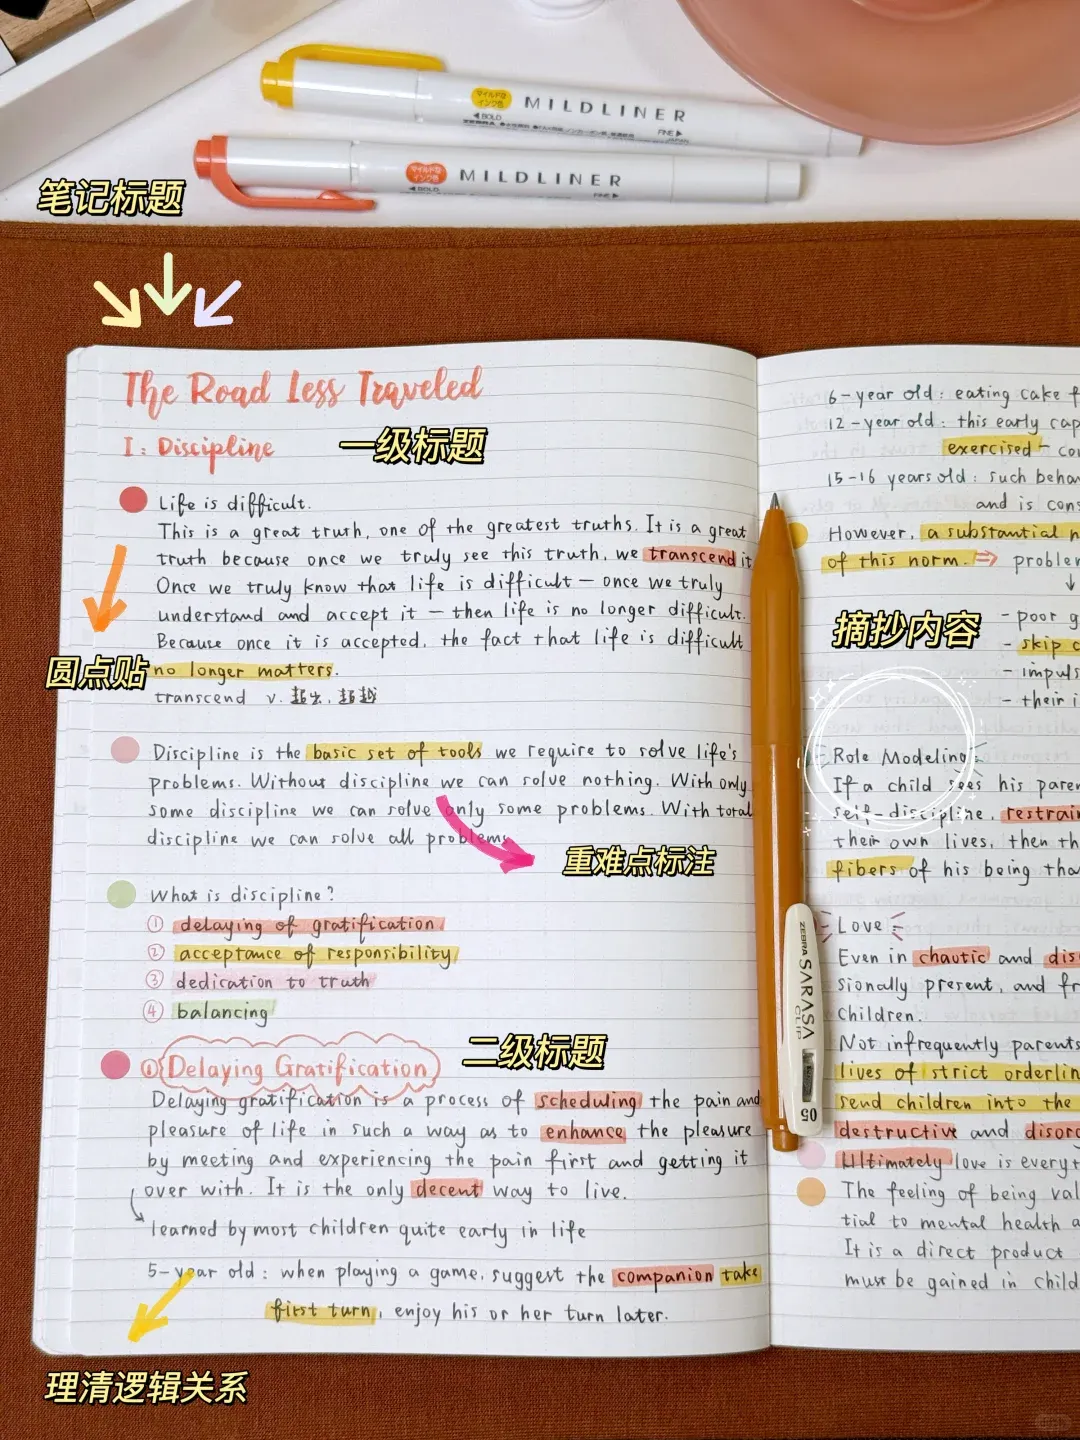 MILDLINER
マイルドなインク色
BOLD
FINE
MILDLINER
マイルドなインク色
BOLD
FINE
笔记标题
The Road Less Traveled
I: Discipline
一级标题
Life is difficult.
This is a great truth, one of the greatest truths. It is a great
truth because once we truly see this truth, we transcend it
Once we truly know that life is difficult — once we truly
understand and accept it — then life is no longer difficult.
Because once it is accepted, the fact that life is difficult
no longer matters.
圆点贴
transcend v. 超出, 超越
Discipline is the basic set of tools we require to solve life's
problems. Without discipline we can solve nothing. With only
some discipline we can solve only some problems. With total
discipline we can solve all problems
重难点标注
What is discipline?
① delaying of gratification
② acceptance of responsibility
③ dedication to truth
④ balancing
二级标题
① Delaying Gratification
Delaying gratification is a process of scheduling the pain and
pleasure of life in such a way as to enhance the pleasure
by meeting and experiencing the pain first and getting it
over with. It is the only decent way to live.
learned by most children quite early in life
5-year old: when playing a game, suggest the companion take
first turn, enjoy his or her turn later.
理清逻辑关系
6-year old: eating cake f
12-year old: this early cap
exercised — co
15-16 years old: such behav
and is cons
However, a substantial n
of this norm. ⇒ problem
↓
摘抄内容
- poor g
- skip c
- impuls
- their i
Role Modeling
If a child sees his pare
self-discipline, restrain
their own lives, then th
fibers of his being tha
Love
Even in chaotic and dis
sionally present, and fr
children.
Not infrequently parents
lives of strict orderlin
send children into the
destructive and disor
Ultimately love is everyt
The feeling of being val
tial to mental health a
It is a direct product
must be gained in child
ZEBRA SARASA CLIP 05